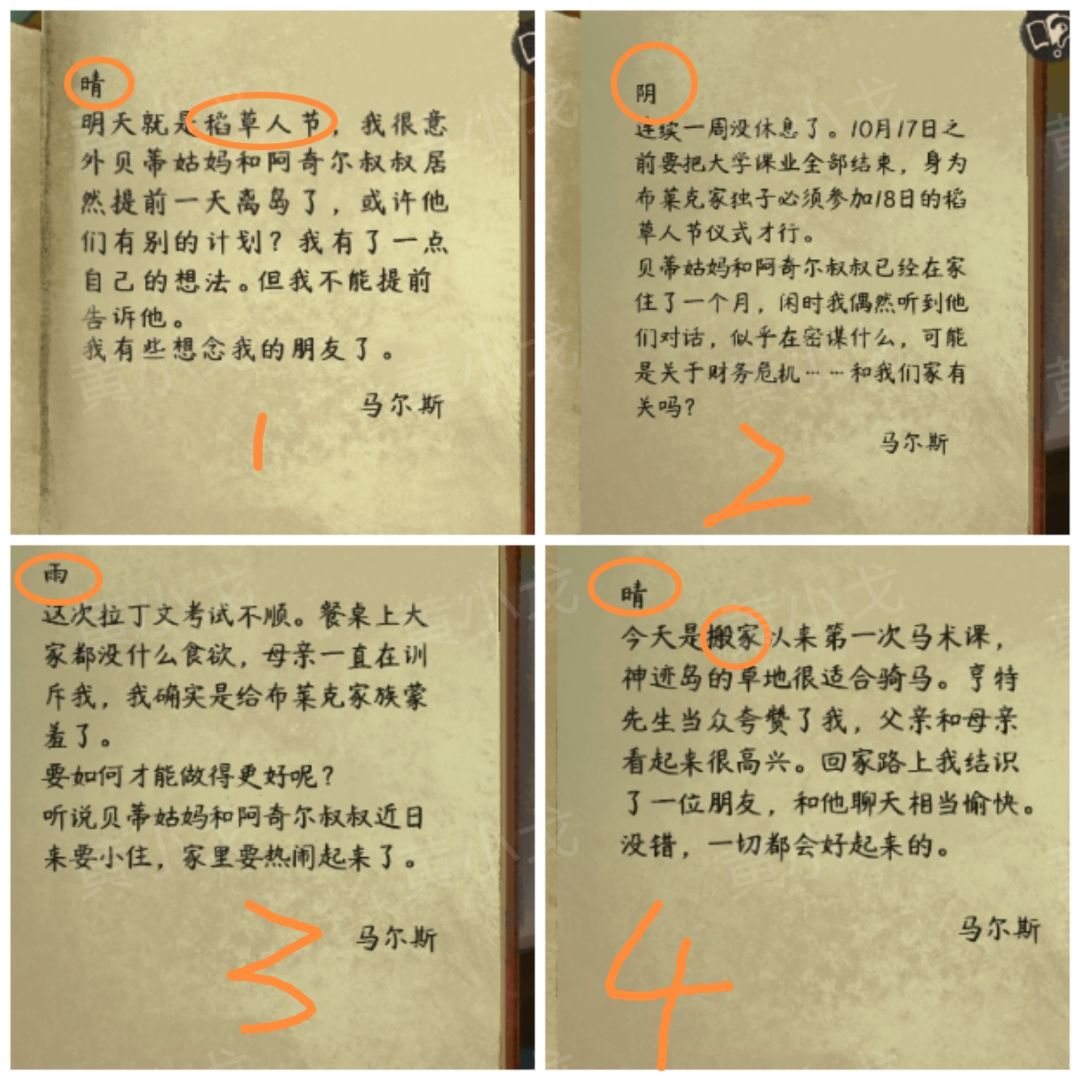 晴
明天就是稻草人节，我很意
外贝蒂姑妈和阿奇尔叔叔居
然提前一天离岛了，或许他
们有别的计划？我有了一点
自己的想法。但我不能提前
告诉他。
我有些想念我的朋友了。
马尔斯
1
阴
连续一周没休息了。10月17日之
前要把大学课业全部结束，身为
布莱克家独子必须参加18日的稻
草人节仪式才行。
贝蒂姑妈和阿奇尔叔叔已经在家
住了一个月，闲时我偶然听到他
们对话，似乎在密谋什么，可能
是关于财务危机……和我们家有
关吗？
马尔斯
2
雨
这次拉丁文考试不顺。餐桌上大
家都没什么食欲，母亲一直在训
斥我，我确实是给布莱克家族蒙
羞了。
要如何才能做得更好呢？
听说贝蒂姑妈和阿奇尔叔叔近日
来要小住，家里要热闹起来了。
马尔斯
3
晴
今天是搬家以来第一次马术课，
神迹岛的草地很适合骑马。亨特
先生当众夸赞了我，父亲和母亲
看起来很高兴。回家路上我结识
了一位朋友，和他聊天相当愉快。
没错，一切都会好起来的。
马尔斯
4